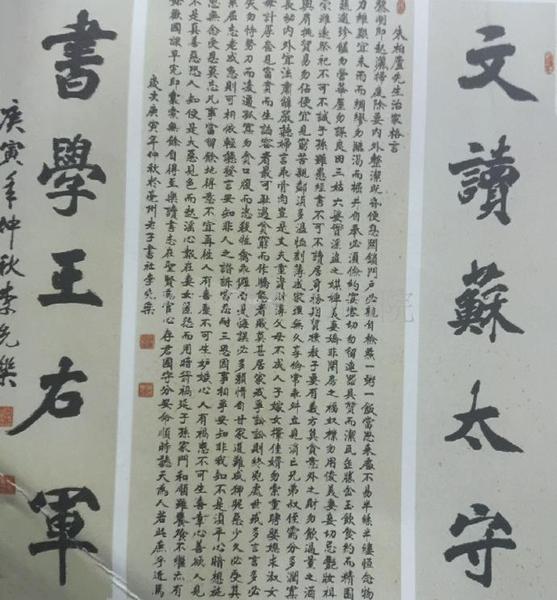 文讀蘇太守
朱柏廬先生治家格言
黎明即起灑掃庭除要內外整潔既昏便息關鎖門戶必親自檢點一粥一飯當思來處不易半絲半縷恒念物
力維艱宜未雨而綢繆勿臨渴而掘井自奉必須儉約宴客切勿留連器具質而潔瓦缶勝金玉飲食約而精園
蔬逾珍饈勿營華屋勿謀良田三姑六婆實淫盜之媒婢美妾嬌非閨房之福奴僕勿用俊美妻妾切忌艷妝祖
宗雖遠祭祀不可不誠子孫雖愚經書不可不讀居身務期質樸教子要有義方莫貪意外之財勿飲過量之酒
與肩挑貿易勿佔便宜見窮苦親鄰須多溫恤刻薄成家理無久享倫常乖舛立見消亡兄弟叔侄需分多潤寡
長幼內外宜法肅辭嚴聽婦言乖骨肉豈是丈夫重資財薄父母不成人子嫁女擇佳婿勿索重聘娶媳求淑女
毋計厚奩見富貴而生諂容者最可恥遇貧窮而作驕態者賤莫甚居家戒爭訟訟則終凶處世戒多言言多必
失勿恃勢力而凌逼孤寡勿貪口腹而恣殺牲禽乖僻自是悔誤必多頹惰自甘家道難成狎昵惡少久必受其
累屈志老成急則可相依輕聽發言安知非人之譖訴當忍耐三思因事相爭安知非我知不是須平心暗想施
惠無念受恩莫忘凡事當留餘地得意不宜再往人有喜慶不可生妒嫉心人有禍患不可生喜幸心善欲人見
不是真善惡恐人知便是大惡見色而起淫心報在妻女匿怨而用暗箭禍延子孫家門和順雖饔飧不繼亦有
餘歡國課早完即囊橐無餘自得至樂讀書志在聖賢為官心存君國守分安命順時聽天為人若此庶乎近焉
歲次庚寅年仲秋於亳州老子書社李先樂
書學王右軍
庚寅年仲秋李先樂